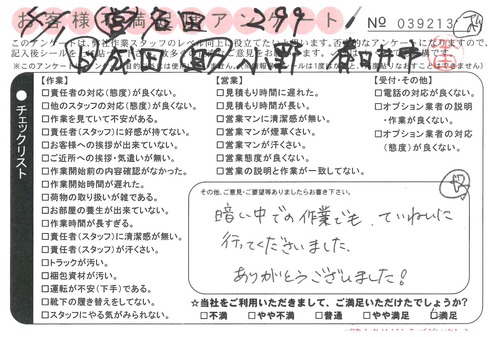 お客様満足アンケート
No 039213
このアンケートは、弊社作業スタッフのレベル向上に役立てたい
【作業】
□責任者の対応(態度)が良くない。
□他のスタッフの対応(態度)が良くない。
□作業を見ていて不安がある。
□責任者(スタッフ)に好感が持てない。
□お客様への挨拶が出来ていない。
□ご近所への挨拶・気遣いが無い。
□作業開始前の内容確認がなかった。
□作業開始時間が遅れた。
□荷物の取り扱いが雑である。
□お部屋の養生が出来ていない。
□作業時間が長すぎる。
□責任者(スタッフ)に清潔感が無い。
□責任者(スタッフ)が汗くさい。
□トラックが汚い。
□梱包資材が汚い。
□運転が不安(下手)である。
□靴下の履き替えをしてない。
□スタッフにやる気がみられない。
【営業】
□見積もり時間に遅れた。
□見積もり時間が長い。
□営業マンに清潔感が無い。
□営業マンが煙草くさい。
□営業マンが汗くさい。
□営業態度が良くない。
□営業の説明と作業が一致してない。
【受付・その他】
□電話の対応が良くない。
□オプション業者の説明
・作業が良くない。
□オプション業者の対応
(態度)が良くない。
●チェックリスト
その他、ご意見・ご要望等ありましたらお書き下さい。
暗い中での作業でも、ていねいに
行ってくださいました。
ありがとうございました!
☆当社をご利用いただきまして、ご満足いただけたでしょうか?
□不満 □やや不満 □普通 □やや満足 □満足